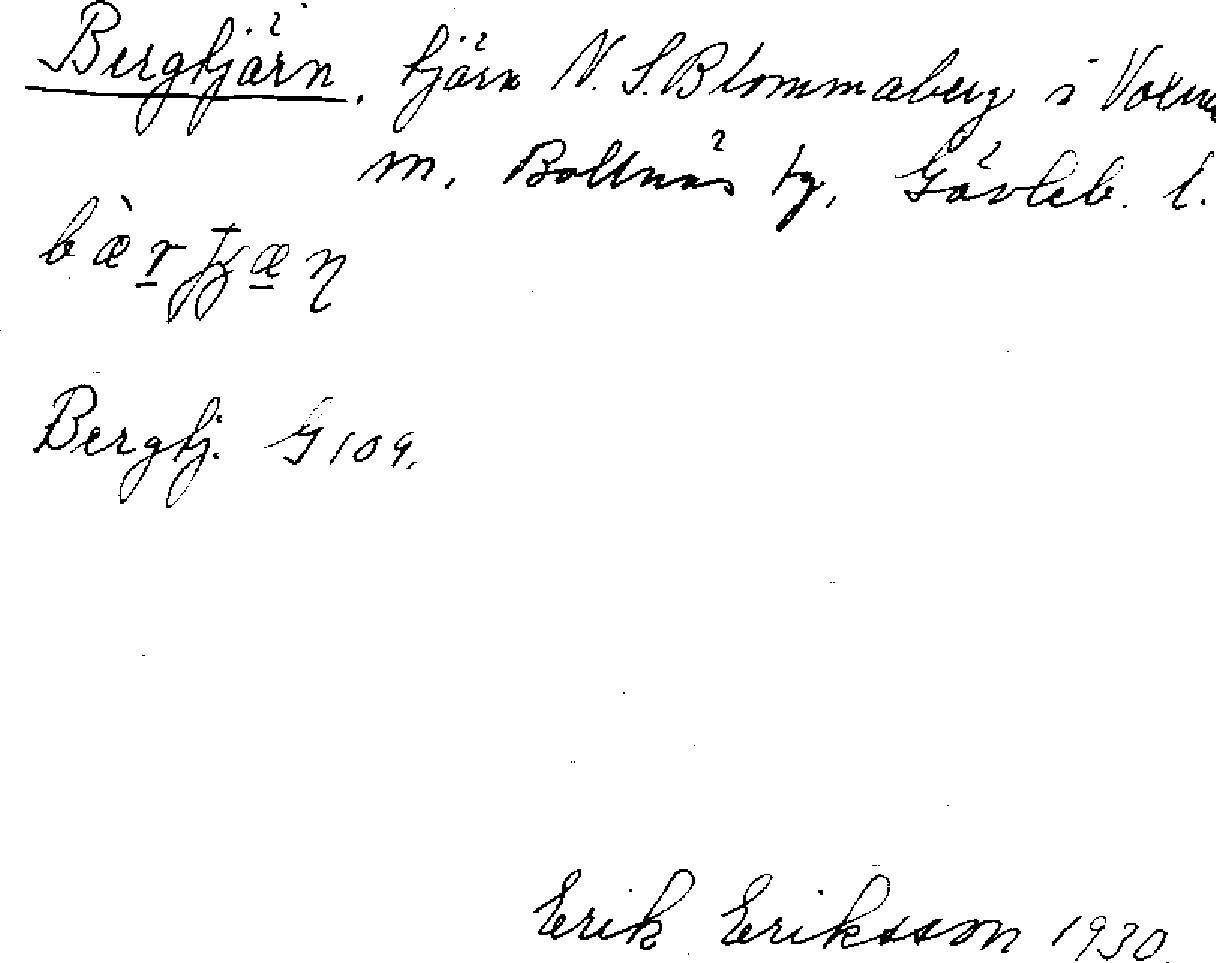 Bergtjärn, tjärn N. S. Blommaberg i Voxna
m. Bollnäs tg, Gävleb. l.
bærtjæn
Bergtj. G 109.
Erik Eriksson 1930.